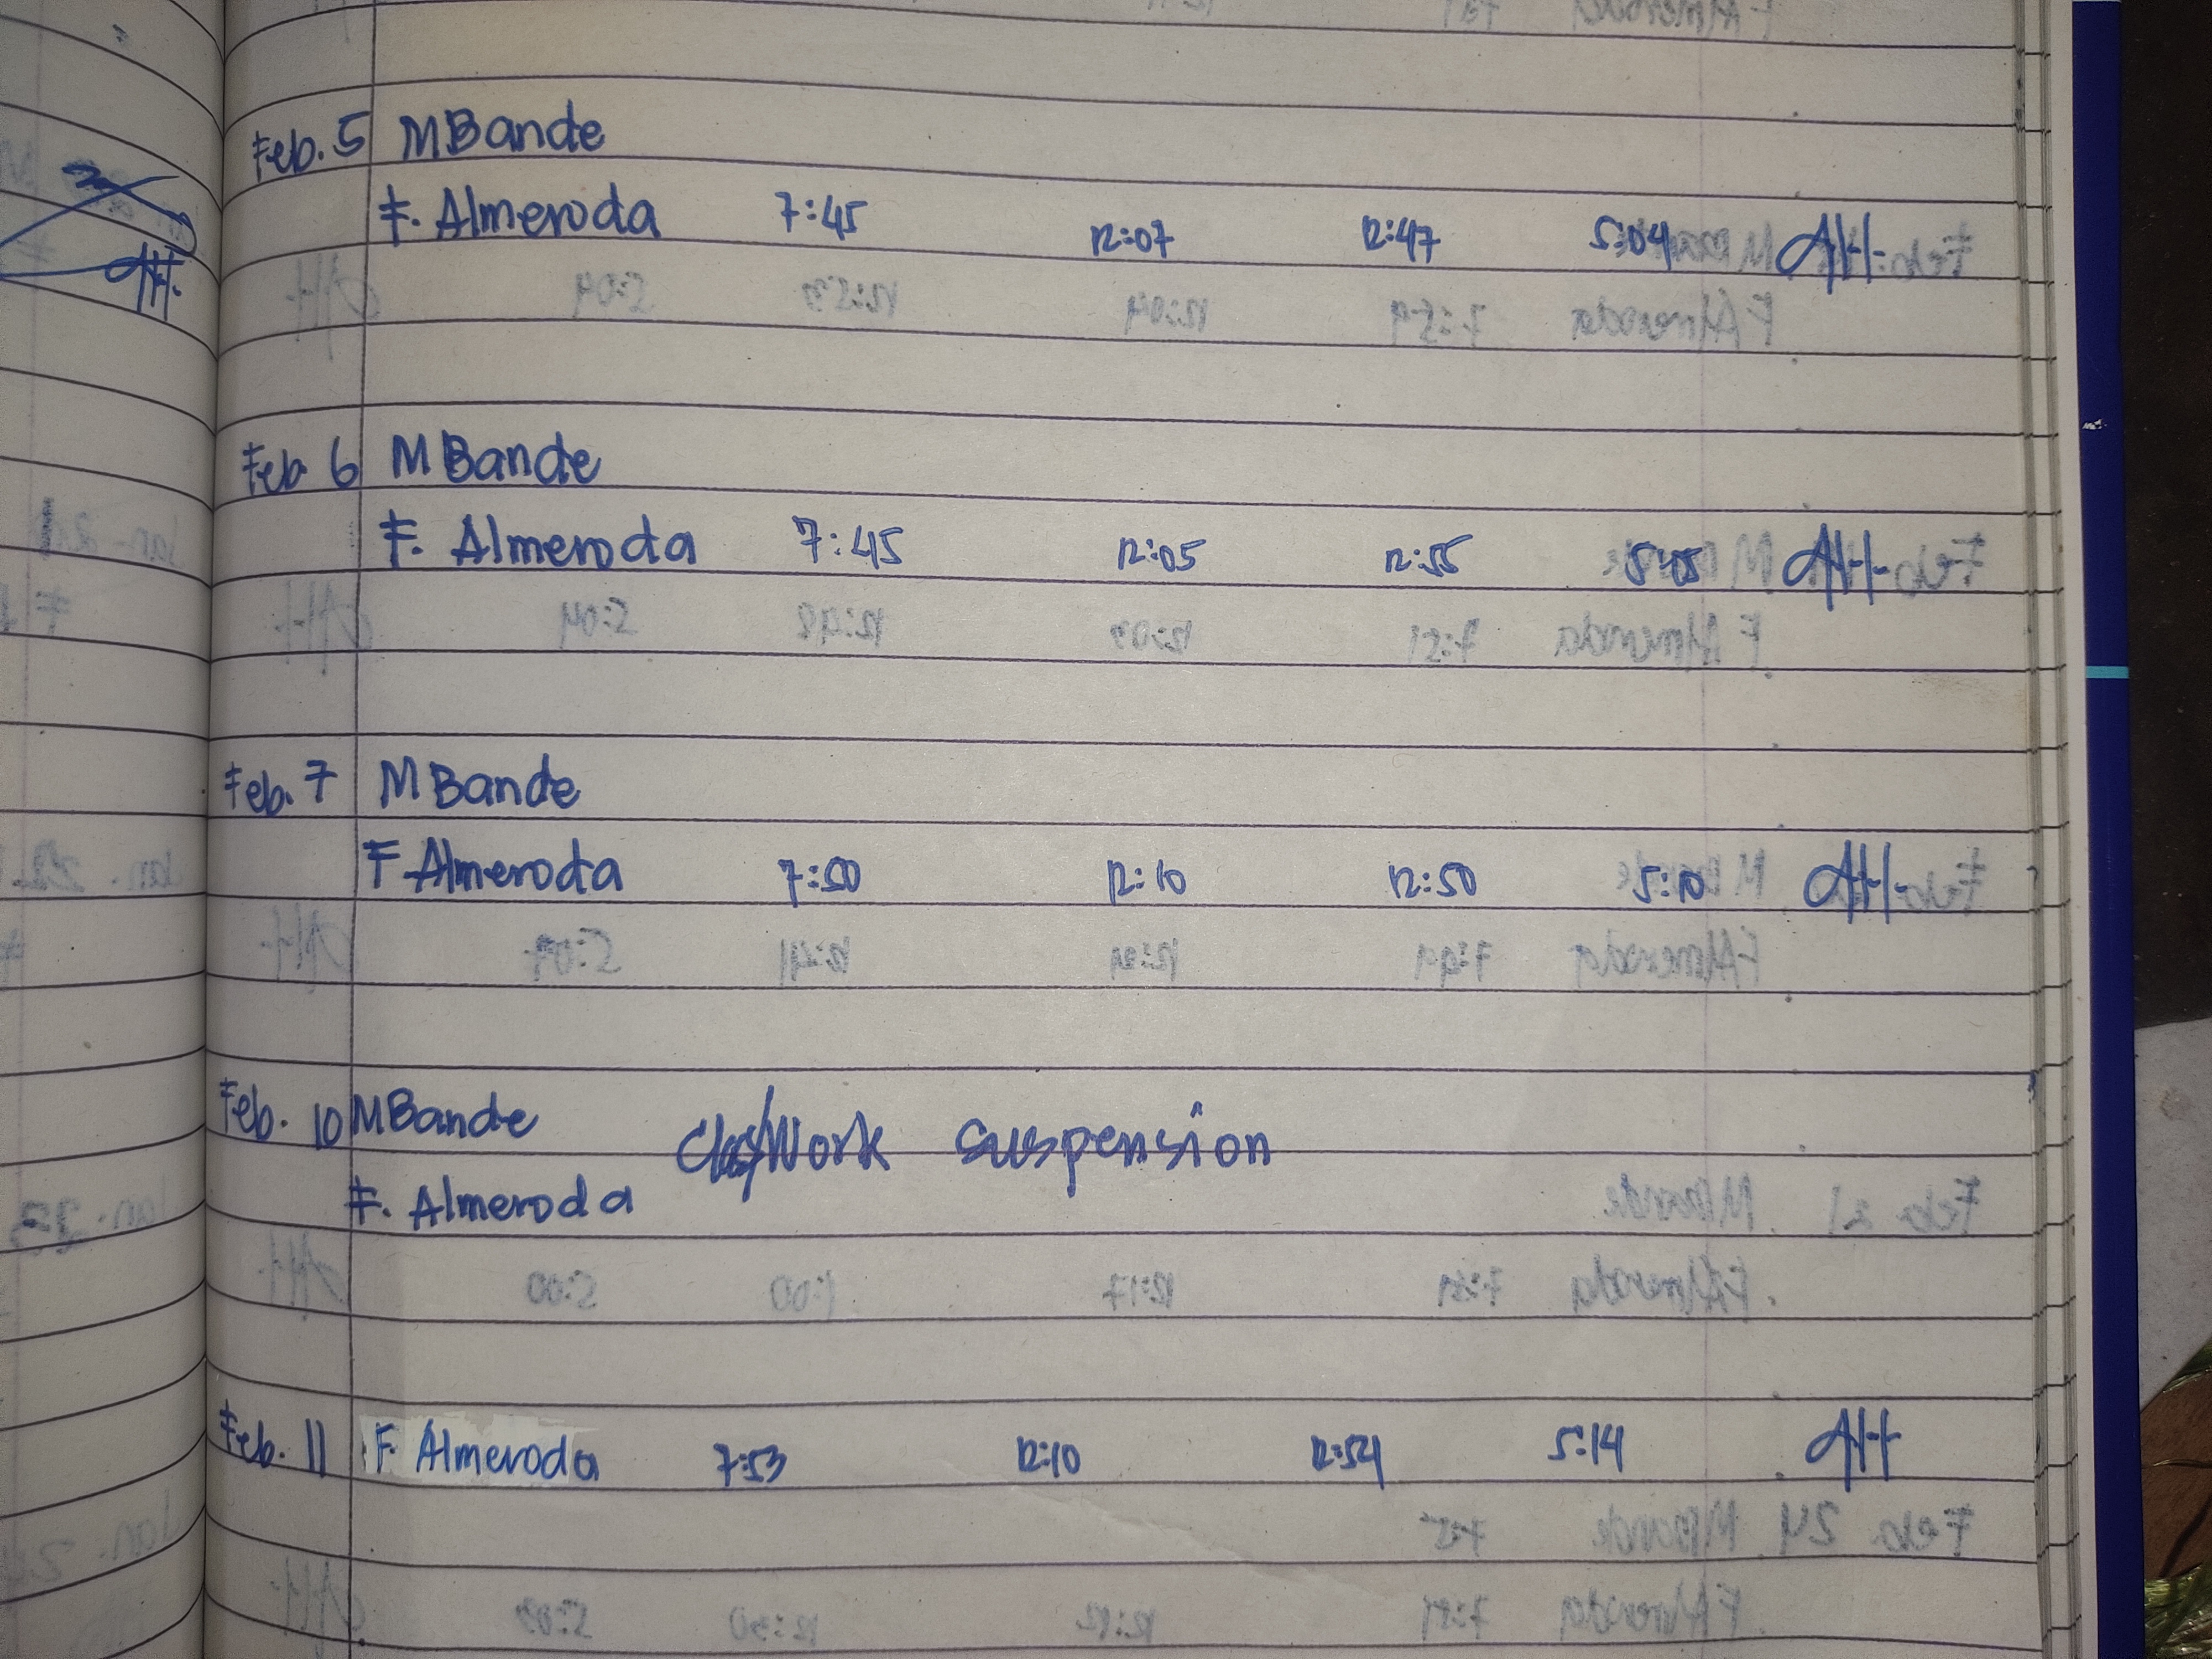 Feb. 5 M Bande
F. Almeroda 7:45 12:07 12:47 5:04 AH.
AH.
Feb 6 M Bande
F. Almeroda 7:45 12:05 12:55 5:05 AH.
Feb. 7 M Bande
F Almeroda 7:50 12:10 12:50 5:10 AH.
Feb. 10 M Bande Class/Work suspension
F. Almeroda
Feb. 11 F. Almeroda 7:53 12:10 12:54 5:14 AH